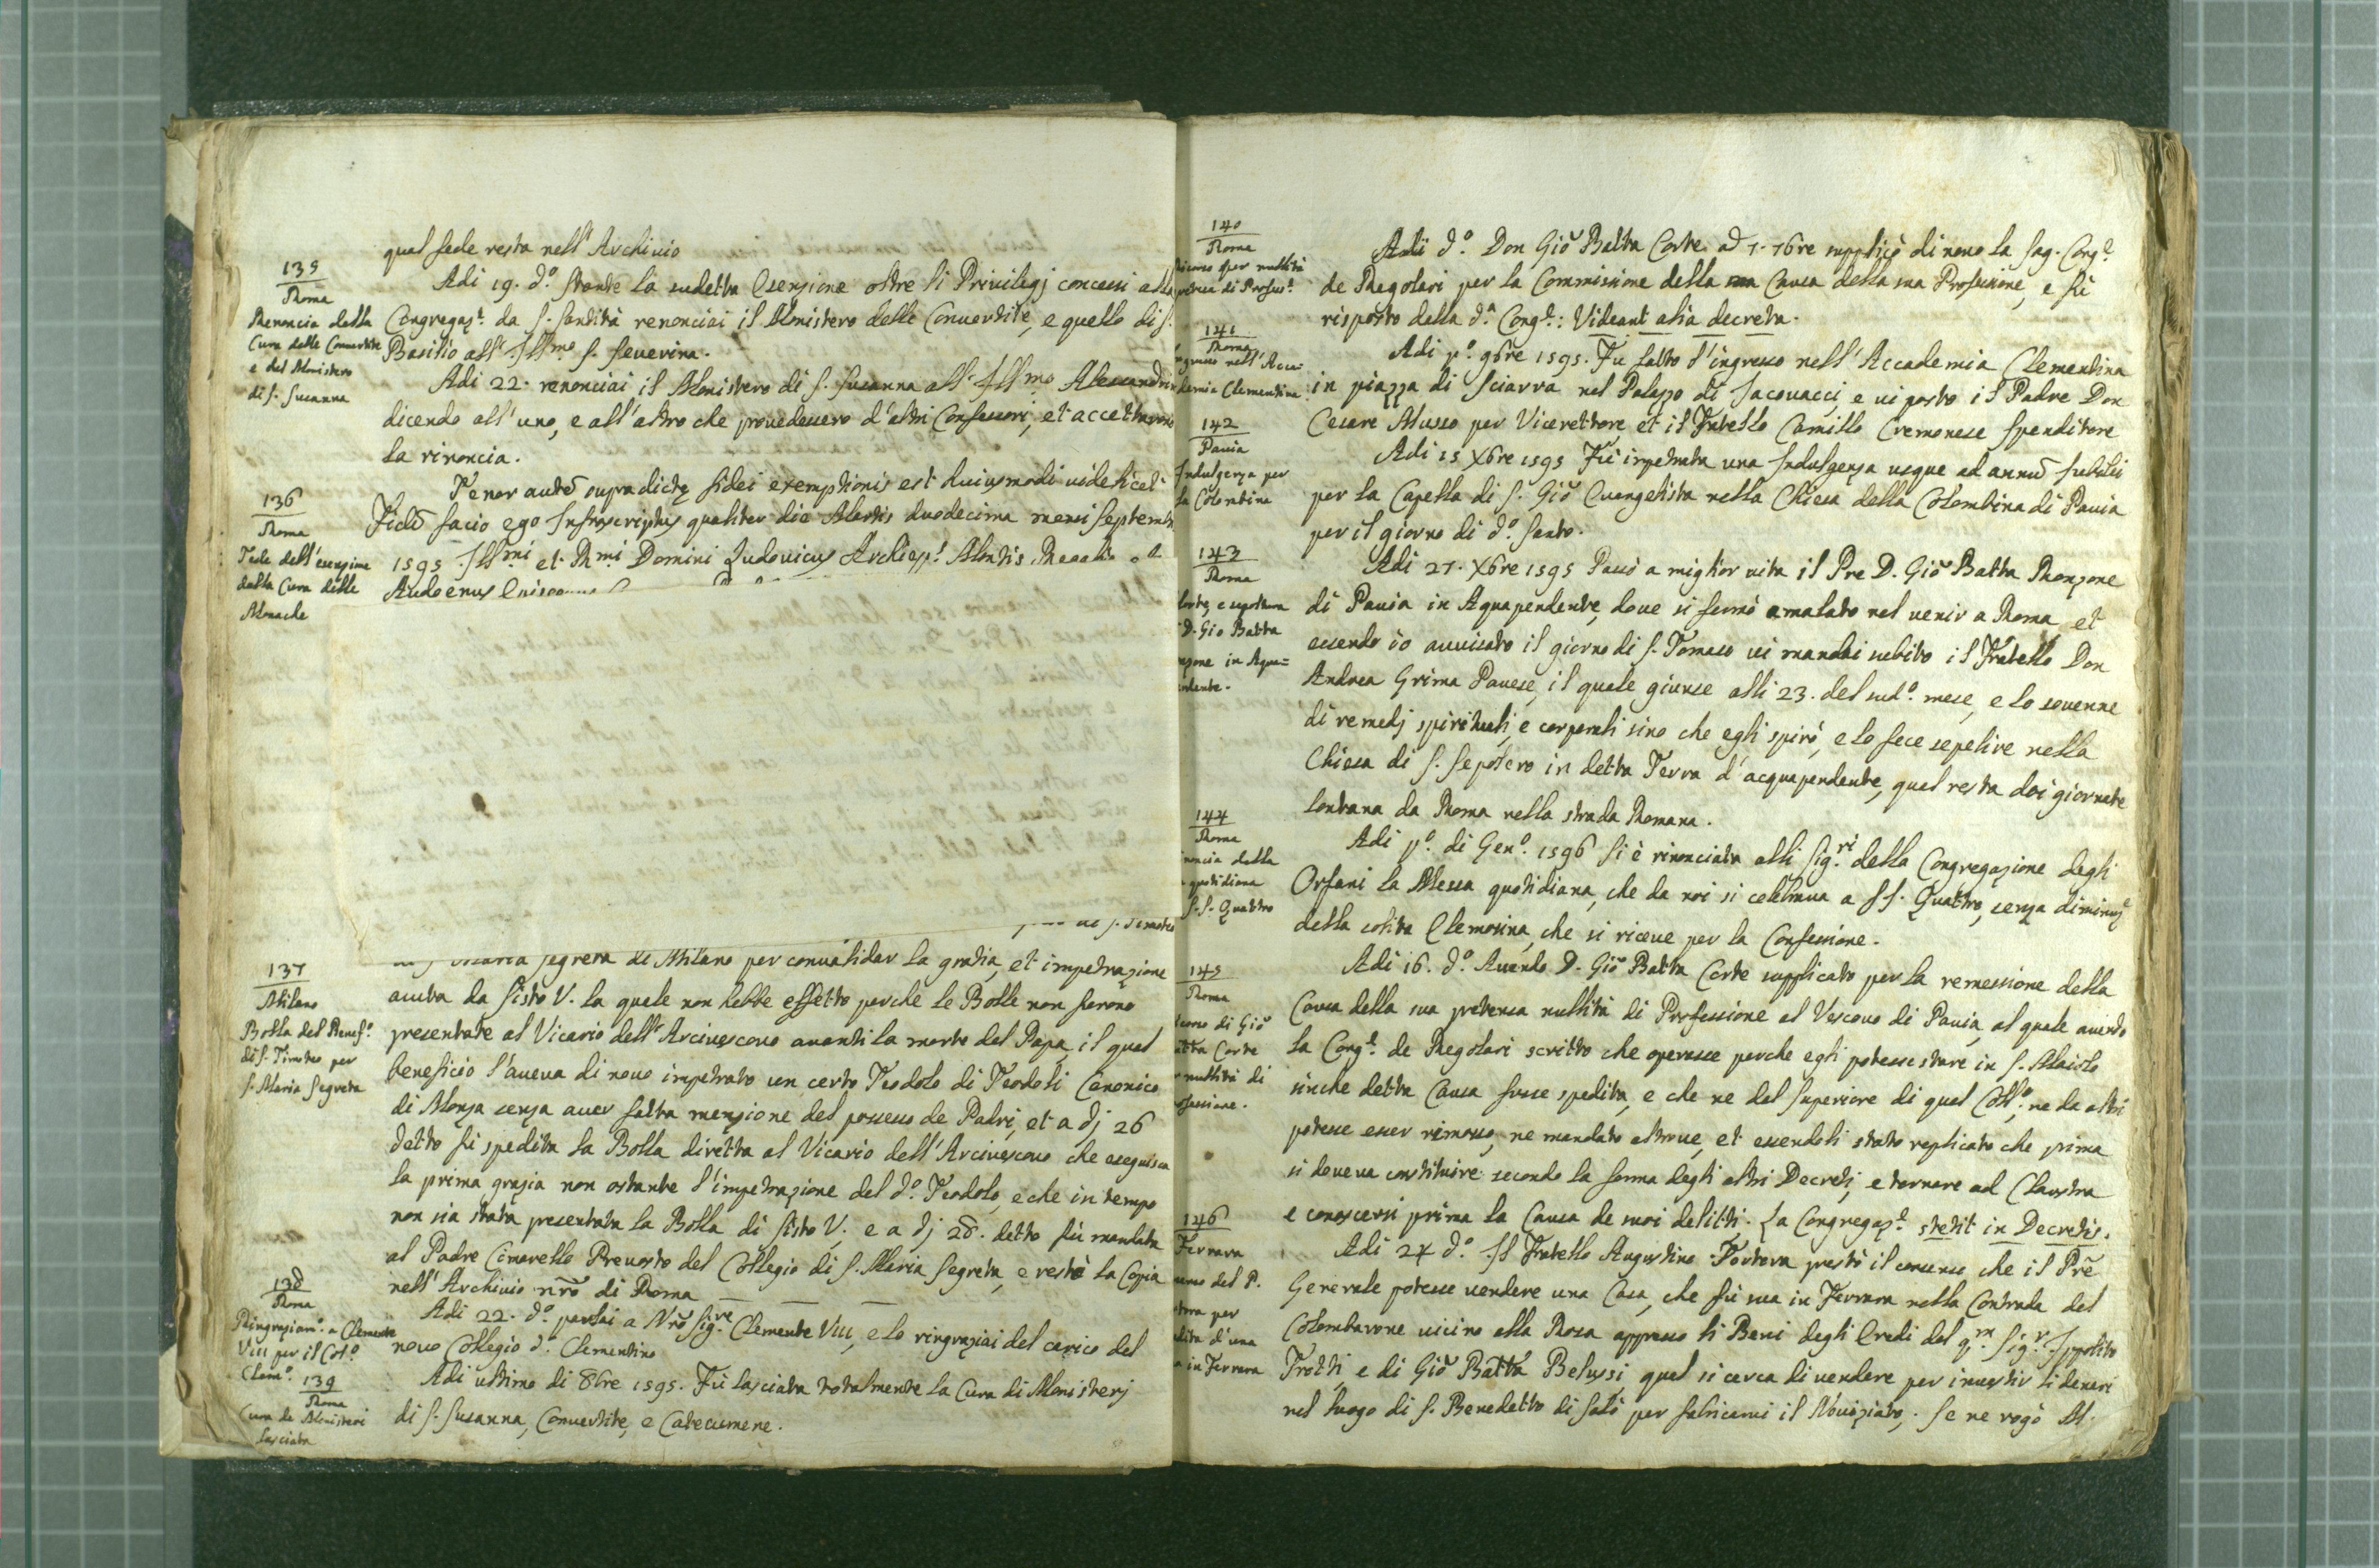 qual fede resta nell'Archivio
135
Roma
Renoncia della
Cura delle Convertite
e del Monistero
di S. Susanna
Adi 19. d.º stante la sudetta Esenzione oltre li Privilegj concessi alla
Congregaz.e da S. Santità renonciai il Monistero delle Convertite, e quello di S.
Basilio all'Ill.mo S. Severina.
Adi 22. renonciai il Monistero di S. Susanna all'Ill.mo
dicendo all'uno, e all'altro che provedessero d'altri Confessori, et accettarono
la rinoncia.
136
Roma
Fede dell'esenzione
dalla Cura delle
Monache
Tenor autē supradictę fidei exemptionis est huiusmodi videlicet
Fidē facio ego Infrascriptus qualiter die Martis duodecima mensi Septemb
1595 Ill.mi et R.mi Domini Ludovicus Archiep.s Montis Regalis et
Audoenus
137
Milano
Bolla del Benef.º
di S. Timoteo per
S. Maria Segreta
Maria Segreta di Milano per convalidar la gratia, et impetrazione
avuta da Sisto V. la quale non hebbe effetto perche le Bolle non furono
presentate al Vicario dell'Arcivescovo avanti la morte del Papa, il qual
beneficio l'aveva di novo impetrato un certo Teodolo di Teodoli Canonico
di Monza senza aver fatta menzione del possesso de Padri, et a dj 26
detto fù spedita la Bolla diretta al Vicario dell'Arcivescovo che eseguisca
la prima grazia non ostante l'impetrazione del d.º Teodolo, e che in tempo
non sia stata presentata la Bolla di Sisto V. e a dj 28. detto fù mandata
al Padre Cimarello Prevosto del Collegio di S. Maria Segreta, e restò la Copia
nell'Archivio nr̃o di Roma
138
Roma
Ringraziam.º a Clemente
VIII per il Col.º
Clem.º
Adi 22. d.º parlai a Nr̃o Sig.re Clemente VIII, e lo ringraziai del carico del
novo Collegio d.º Clementino
139
Roma
Cura de Monisteri
lasciata
Adi ultimo di 8bre 1595. Fù lasciata totalmente la Cura di Monisterj
di S. Susanna, Convertite, e Catecumene.
140
Roma
per nullità
Adi d.º Don Giõ Batta Corte supplicò di novo la Sag. Cong.e
de Regolari per la Commissione della Causa della sua Professione, e fù
risposto dalla d.a Cong.e: Videant alia decreta.
141
Roma
nell'Acca
demia Clementina
Adi p.º 9bre 1595. Fu fatto l'ingresso nell'Accademia Clementina
in piazza di Sciarra nel Palazzo di Jacovacci e vi posto il Padre Don
Cesare Musso per Vicerettore et il Fratello Camillo Cremonese Spenditore
142
Pavia
Indulgenza per
la Colombina
Adi 15 Xbre 1595 Fù impetrata una Indulgenza usque ad annũ Jubilei
per la Capella di S. Giõ Evangelista nella Chiesa della Colombina di Pavia
per il giorno di d.º Santo.
143
Roma
e sepoltura
D. Gio Batta
in Aqua=
pendente.
Adi 27. Xbre 1595 Passò a miglior vita il Pre D. Giõ Batta Ronzone
di Pavia in Aquapendente, dove si fermò amalato nel venir a Roma, et
essendo io avvisato il giorno di S. Tomaso vi mandai subito il Fratello Don
Andrea Grima Pavese, il quale giunse alli 23. del sud.º mese, e lo sovenne
di remedj spirituali, e corporali sino che egli spirò, e lo fece sepelire nella
Chiesa di S. Sepolcro in detta Terra d'acquapendente, qual resta doi giornate
lontana da Roma nella strada Romana.
144
Roma
della
quotidiana
S.S. Quattro
Adi p.º di Gen.º 1596 Si è rinonciata alli Sig.ri della Congregazione degli
Orfani la Messa quotidiana, che da noi si celebrava a SS. Quattro, senza diminuz.e
della solita Elemosina, che si riceve per la Confessione.
145
Roma
di Giõ
Batta Corte
nullità di
professione.
Adi 16. d.º Avendo D. Giõ Batta Corte supplicato per la remessione della
Causa della sua pretensa nullità di Professione al Vescovo di Pavia, al quale avendo
la Cong.e de Regolari scritto che operasse perche egli potesse stare in S. Maiolo
sinche detta Causa fusse spedita, e che ne dal Superiore di quel Coll.º, ne da altri
potesse esser rimosso, ne mandato altrove, et essendoli stato replicato che prima
si doveva constituire secondo la forma degli altri Decreti, e tornare ad Claustra
e conoscersi prima la Causa de suoi delitti. La Congregaz.e stetit in Decretis.
146
Ferrara
del P.
per
d'una
in Ferrara
Adi 24 d.º Il Fratello Augustino Tortora prestò il consenso che il Pr̃e
Generale potesse vendere una Casa, che fù sua in Ferrara nella Contrada del
Colombarone vicino alla Rosa appresso li Beni degli Eredi del q.m Sig.r Ippolito
Trotti e di Giõ Batta Belussi qual si cerca di vendere per investir li denari
nel luogo di S. Benedetto di Salò per fabricarvi il Noviziato. Se ne rogò M.